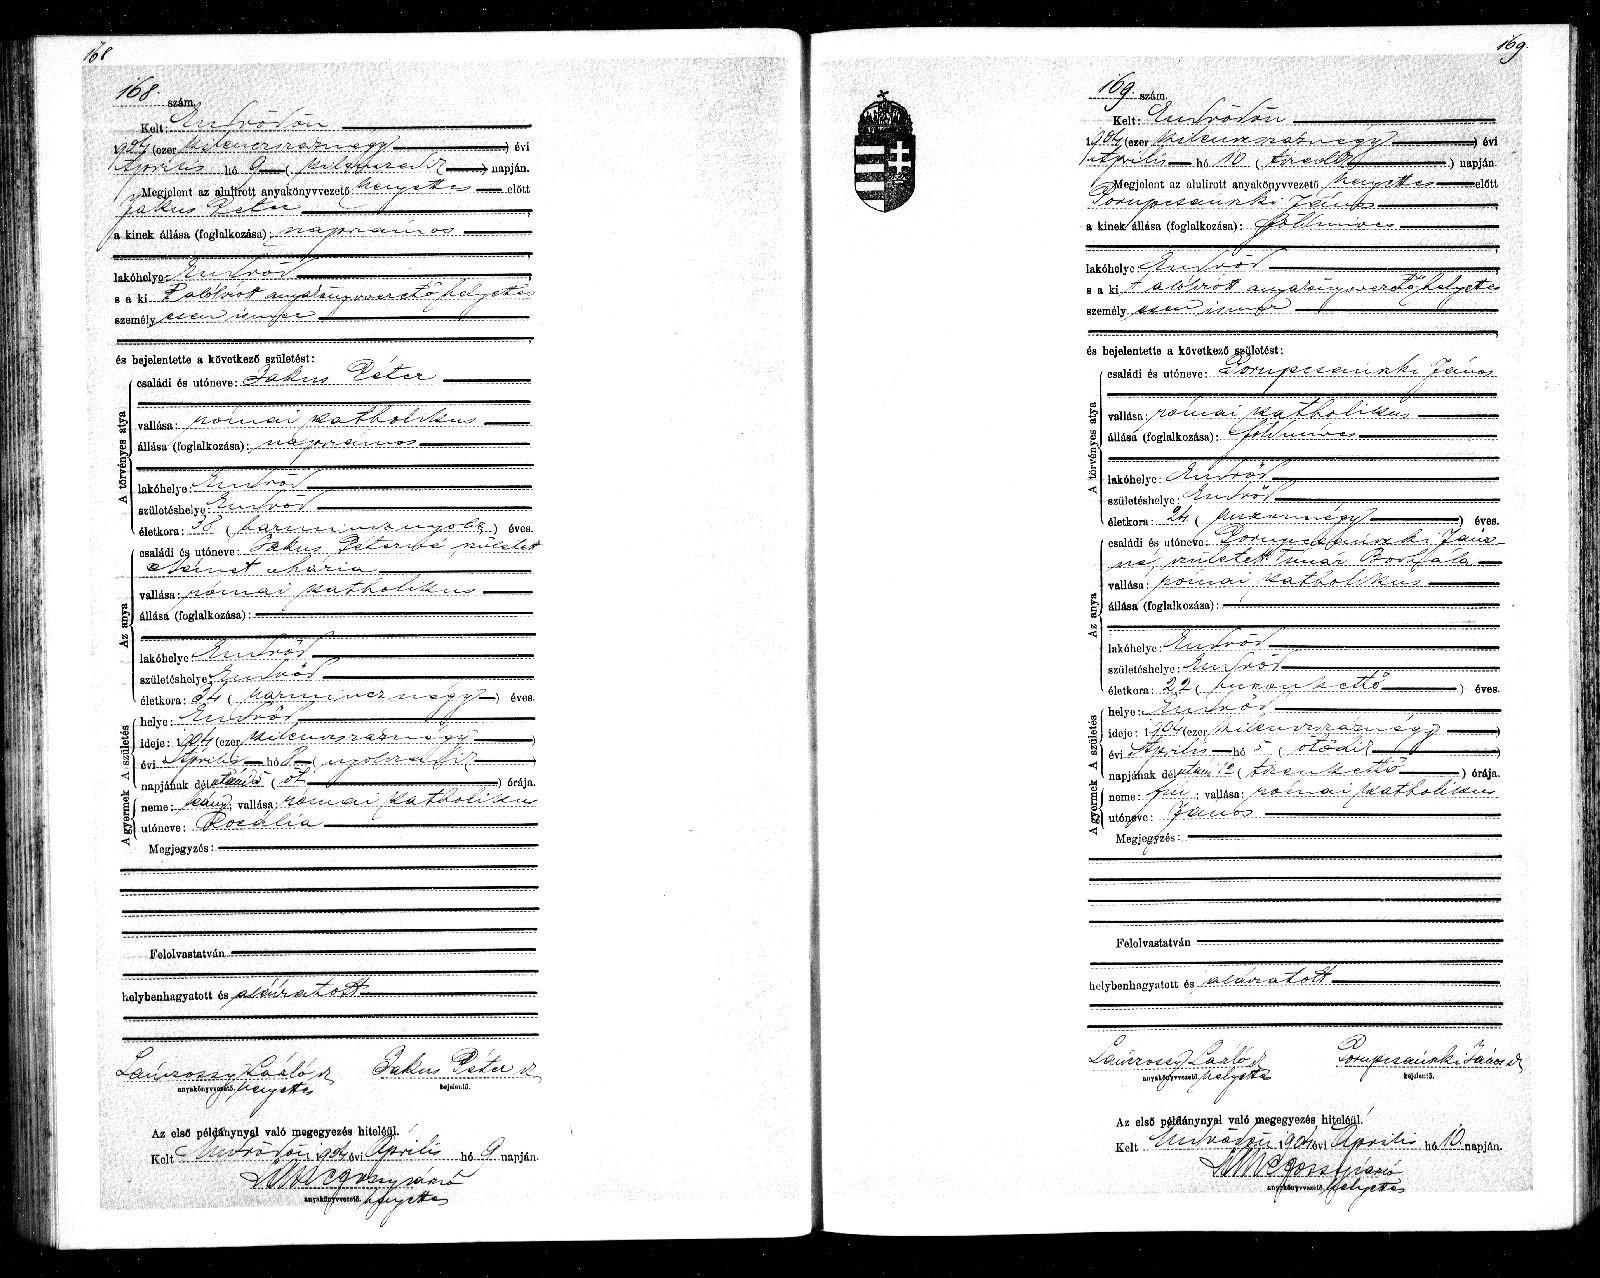 168
168. szám.
Kelt: Endrődön
1904 (ezer kilencszáznégy) évi
Április hó 9 (kilenczedik) napján.
Megjelent az alulirott anyakönyvvezető helyettes előtt
Jakus Péter
a kinek állása (foglalkozása): napszámos
lakóhelye: Endrőd
s a ki t alólírott anyakönyvvezető helyettes
személyesen ismer
és bejelentette a következő születést:
A törvényes atya
családi és utóneve: Jakus Péter
vallása: római katholikus
állása (foglalkozása): napszámos
lakóhelye: Endrőd
születéshelye: Endrőd
életkora: 38 (harmincznyolcz) éves.
Az anya
családi és utóneve: Jakus Péterné született
Német Mária
vallása: római katholikus
állása (foglalkozása):
lakóhelye: Endrőd
születéshelye: Endrőd
életkora: 34 (harmincznégy) éves.
A gyermek A születés
helye: Endrőd
ideje: 1904 (ezer kilencszáznégy)
évi Április hó 8 (nyolczadik)
napjának délután 5 (öt) órája.
neme: leány; vallása: római katholikus
utóneve: Rozália
Megjegyzés:
Felolvastatván
helybenhagyatott és aláíratott
László helyettes
anyakönyvvezető.
Jakus Péter
bejelentő.
Az első példánynyal való megegyezés hiteléül.
Kelt Endrődön 1904 évi Április hó 9 napján.
helyettes
anyakönyvvezető.
169.
169. szám.
Kelt: Endrődön
1904 (ezer kilencszáznégy) évi
Április hó 10 (tizedik) napján.
Megjelent az alulirott anyakönyvvezető helyettes előtt
Porubcsánszki János
a kinek állása (foglalkozása): földmíves
lakóhelye: Endrőd
s a ki t alólírott anyakönyvvezető helyettes
személyesen ismer
és bejelentette a következő születést:
A törvényes atya
családi és utóneve: Porubcsánszki János
vallása: római katholikus
állása (foglalkozása): földmíves
lakóhelye: Endrőd
születéshelye: Endrőd
életkora: 24 (huszonnégy) éves.
Az anya
családi és utóneve: Porubcsánszki János-
né, született Tímár Borbála
vallása: római katholikus
állása (foglalkozása):
lakóhelye: Endrőd
születéshelye: Endrőd
életkora: 22 (huszonkettő) éves.
A gyermek A születés
helye: Endrőd
ideje: 1904 (ezer kilencszáznégy)
évi Április hó 5 (ötödik)
napjának délután 12 (tizenkettő) órája.
neme: fiú; vallása: római katholikus
utóneve: János
Megjegyzés:
Felolvastatván
helybenhagyatott és aláíratott
László helyettes
anyakönyvvezető.
Porubcsánszki János
bejelentő.
Az első példánynyal való megegyezés hiteléül.
Kelt Endrődön 1904 évi Április hó 10 napján.
helyettes
anyakönyvvezető.